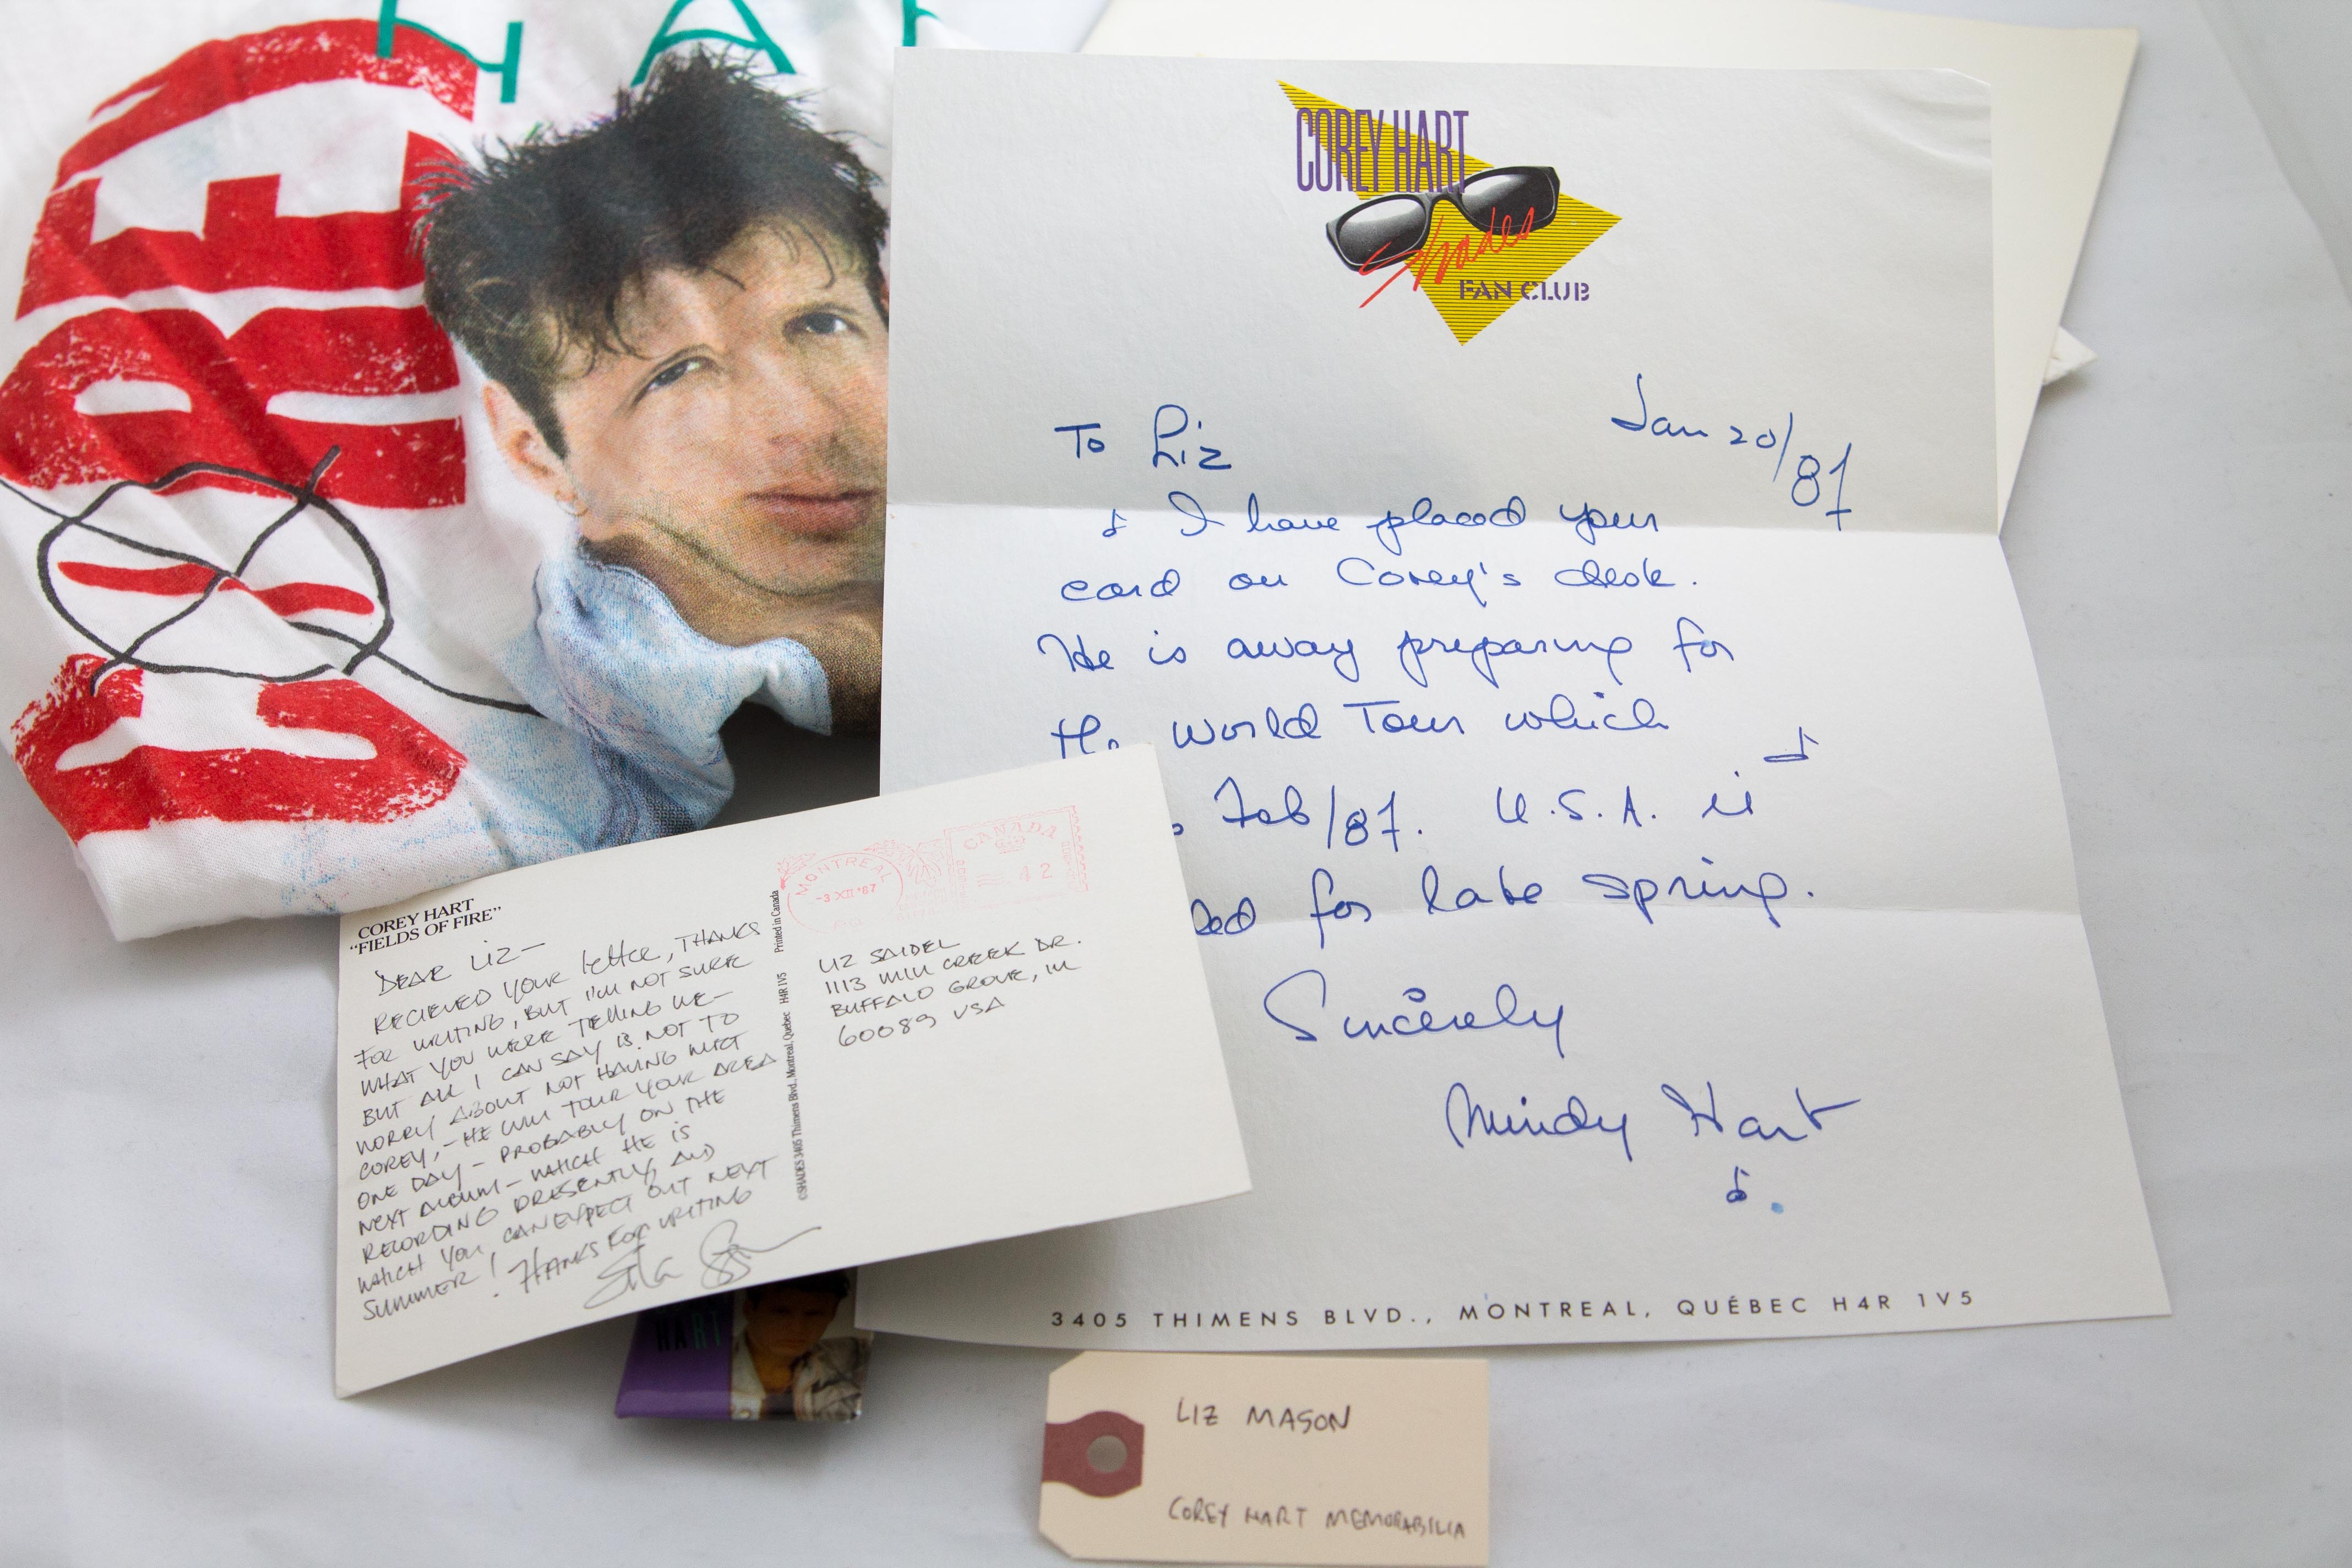 HA
FIRE
COREY HART
Shades
FAN CLUB
To Liz
Jan 20/87
I have placed your
card on Corey's desk.
He is away preparing for
the World Tour which
Feb/87. U.S.A. is
for late spring.
Sincerely
Mindy Hart
3405 THIMENS BLVD., MONTREAL, QUÉBEC H4R 1V5
COREY HART
"FIELDS OF FIRE"
DEAR LIZ-
RECIEVED YOUR letter, THANKS
FOR WRITING, BUT I'M NOT SURE
WHAT YOU WERE TELLING ME-
BUT ALL I CAN SAY IS NOT TO
WORRY ABOUT NOT HAVING MET
COREY,- HE WILL TOUR YOUR AREA
ONE DAY - PROBABLY ON THE
NEXT ALBUM - WHICH HE IS
RECORDING PRESENTLY, AND
WHICH YOU CAN EXPECT OUT NEXT
SUMMER! THANKS FOR WRITING
©SHADES 3405 Thimens Blvd., Montreal, Quebec H4R 1V5 Printed in Canada
MONTREAL
-3 XII '87
CANADA
42
LIZ SAIDEL
1113 MILL CREEK DR.
BUFFALO GROVE, ILL
60089 USA
HART
LIZ MASON
COREY HART MEMORABILIA